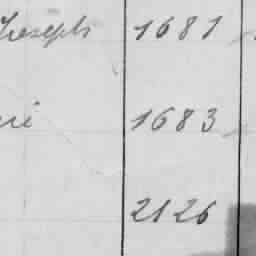 Joseph 1681
1683
2126